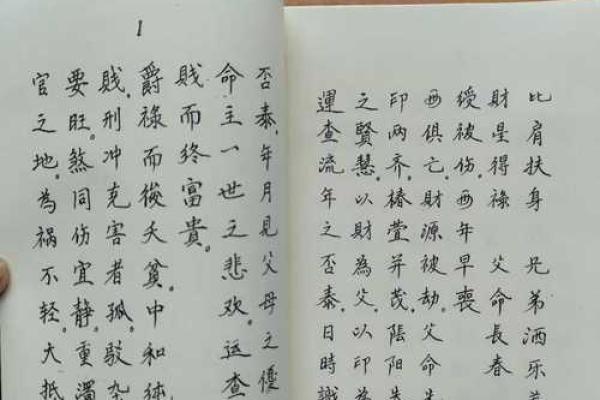 比肩扶身 兄弟洒乐
財星得禄 父命長春
绶被伤。年早喪
俱亡。財源被劫。父命
印两齐。椿萱并茂。陰阳
之賢慧。以財為父。以印為
運查流年之否泰。日時識
1
否泰。年月見父母之優
命主一世之悲欢。运查
贱而终富貴。
爵禄而後夭貧。中和纯
贱。刑冲克害者孤。駁杂
要旺。煞同伤宜静。重濁
官之地。為禍不轻。大抵